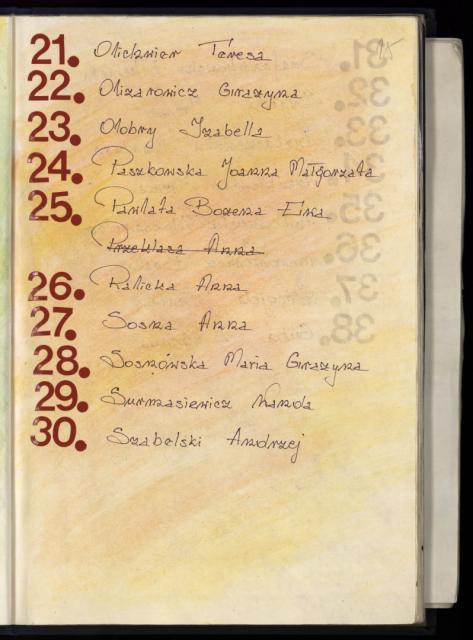 21. Olickwier Teresa
22. Olizarowicz Grażyna
23. Olobry Izabella
24. Paszkowska Joanna Małgorzata
25. Pawlata Bożena Ewa
Przeklasa Anna
26. Ralicka Anna
27. Sosna Anna
28. Sosnówska Maria Grażyna
29. Surmasiewicz Wanda
30. Szabelski Andrzej